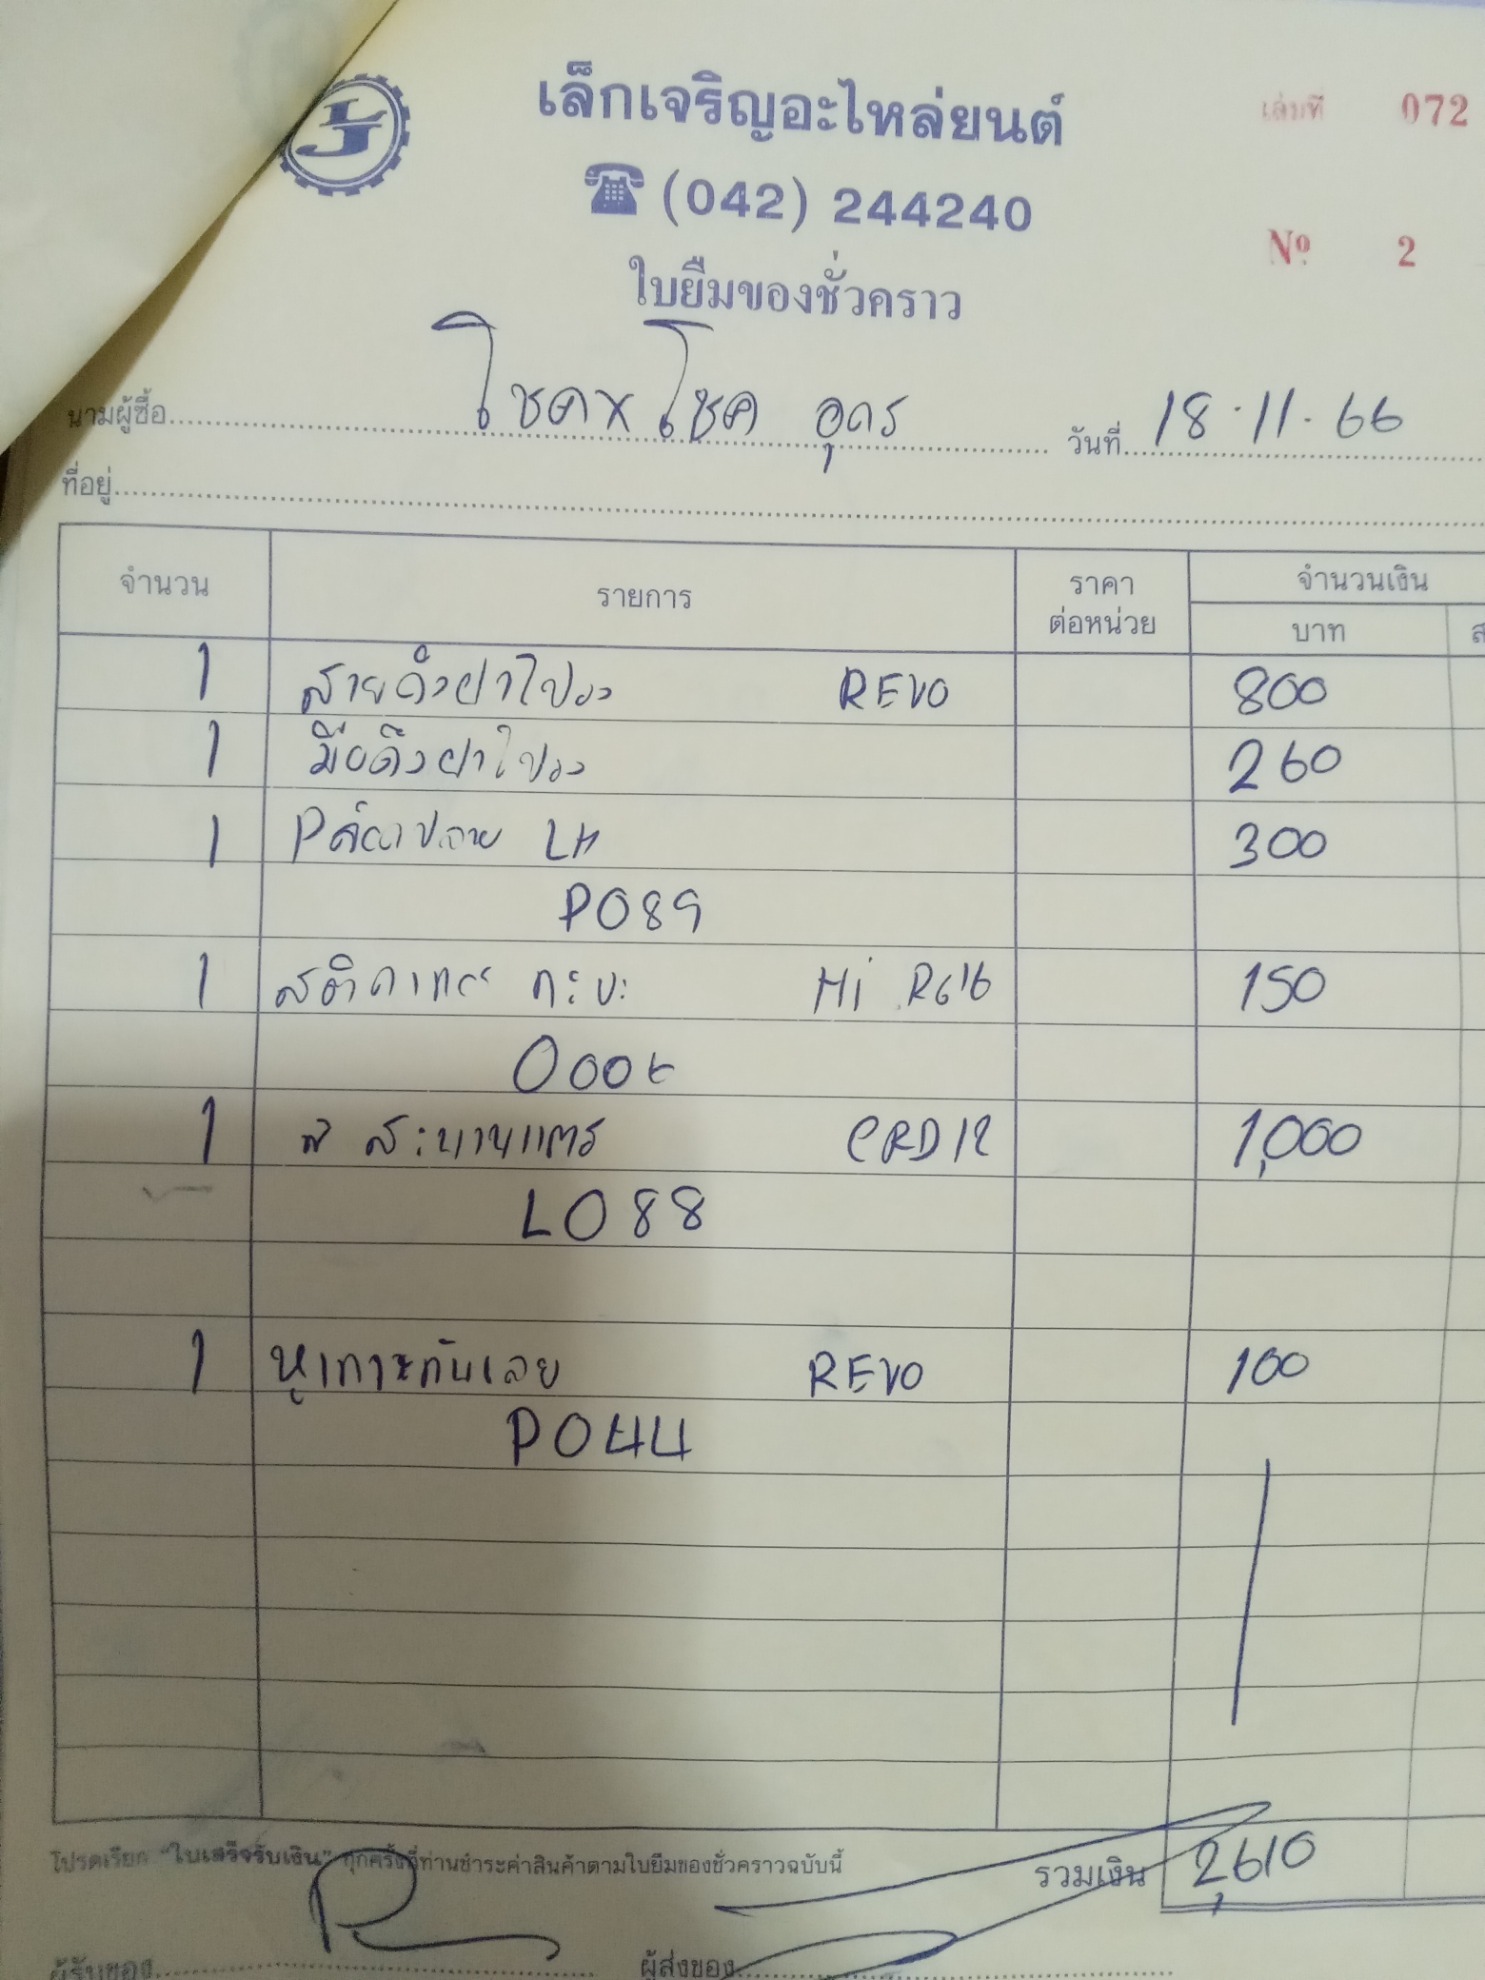 เล็กเจริญอะไหล่ยนต์
เล่มที่ 072
(042) 244240
Nº 2
ใบยืมของชั่วคราว
นามผู้ซื้อ โชคxโชค อุดร วันที่ 18.11.66
ที่อยู่
จำนวน รายการ ราคาต่อหน่วย จำนวนเงิน
บาท ส
1 สายดึงฝาโปรง REVO 800
1 มือดึงฝาโปรง 260
1 Pล้อปลาย LH 300
P089
1 สติกเกอร์ กะบะ Hi R616 150
000t
1 สะพานแตร CRD12 1,000
L088
1 หูเกาะกันเลย REVO 100
P044
โปรดเรียก "ใบเสร็จรับเงิน" ทุกครั้งที่ท่านชำระค่าสินค้าตามใบยืมของชั่วคราวฉบับนี้
รวมเงิน 2,610
ผู้รับของ ผู้ส่งของ